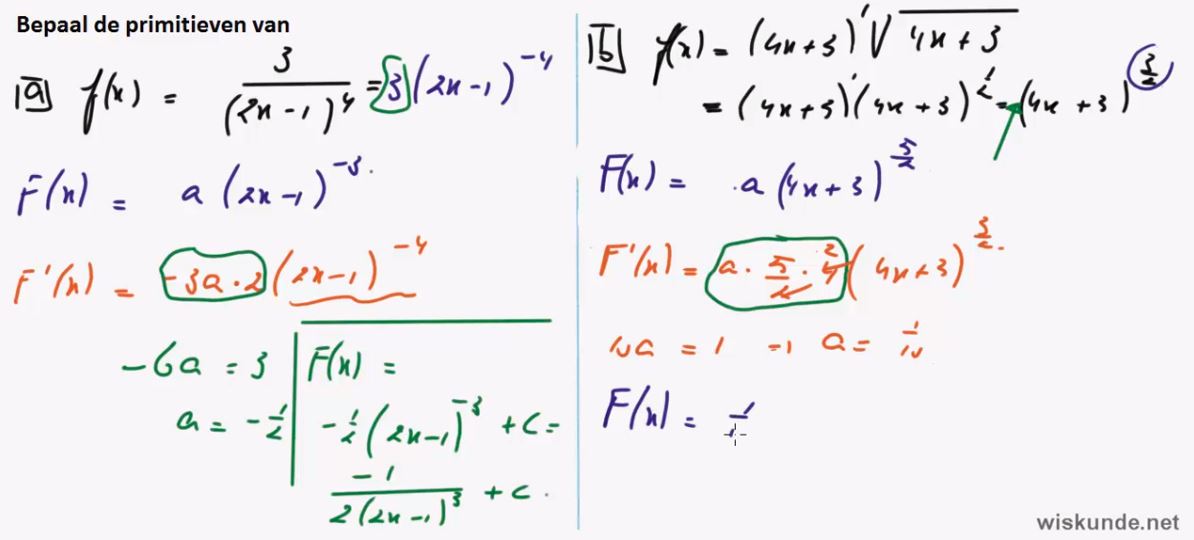 Bepaal de primitieven van
a f(x) = 3/(2x-1)^4 = 3(2x-1)^-4
F(x) = a(2x-1)^-3.
F'(x) = -3a·2(2x-1)^-4
-6a = 3
a = -1/2
F(x) =
-1/2(2x-1)^-3 + C =
-1/(2(2x-1)^3) + C.
b f(x) = (4x+3)^1 √4x+3
= (4x+3)^1(4x+3)^1/2 = (4x+3)^3/2
F(x) = a(4x+3)^5/2
F'(x) = a·5/2·4 2(4x+3)^3/2.
10a = 1 → a = 1/10
F(x) = 1
wiskunde.net